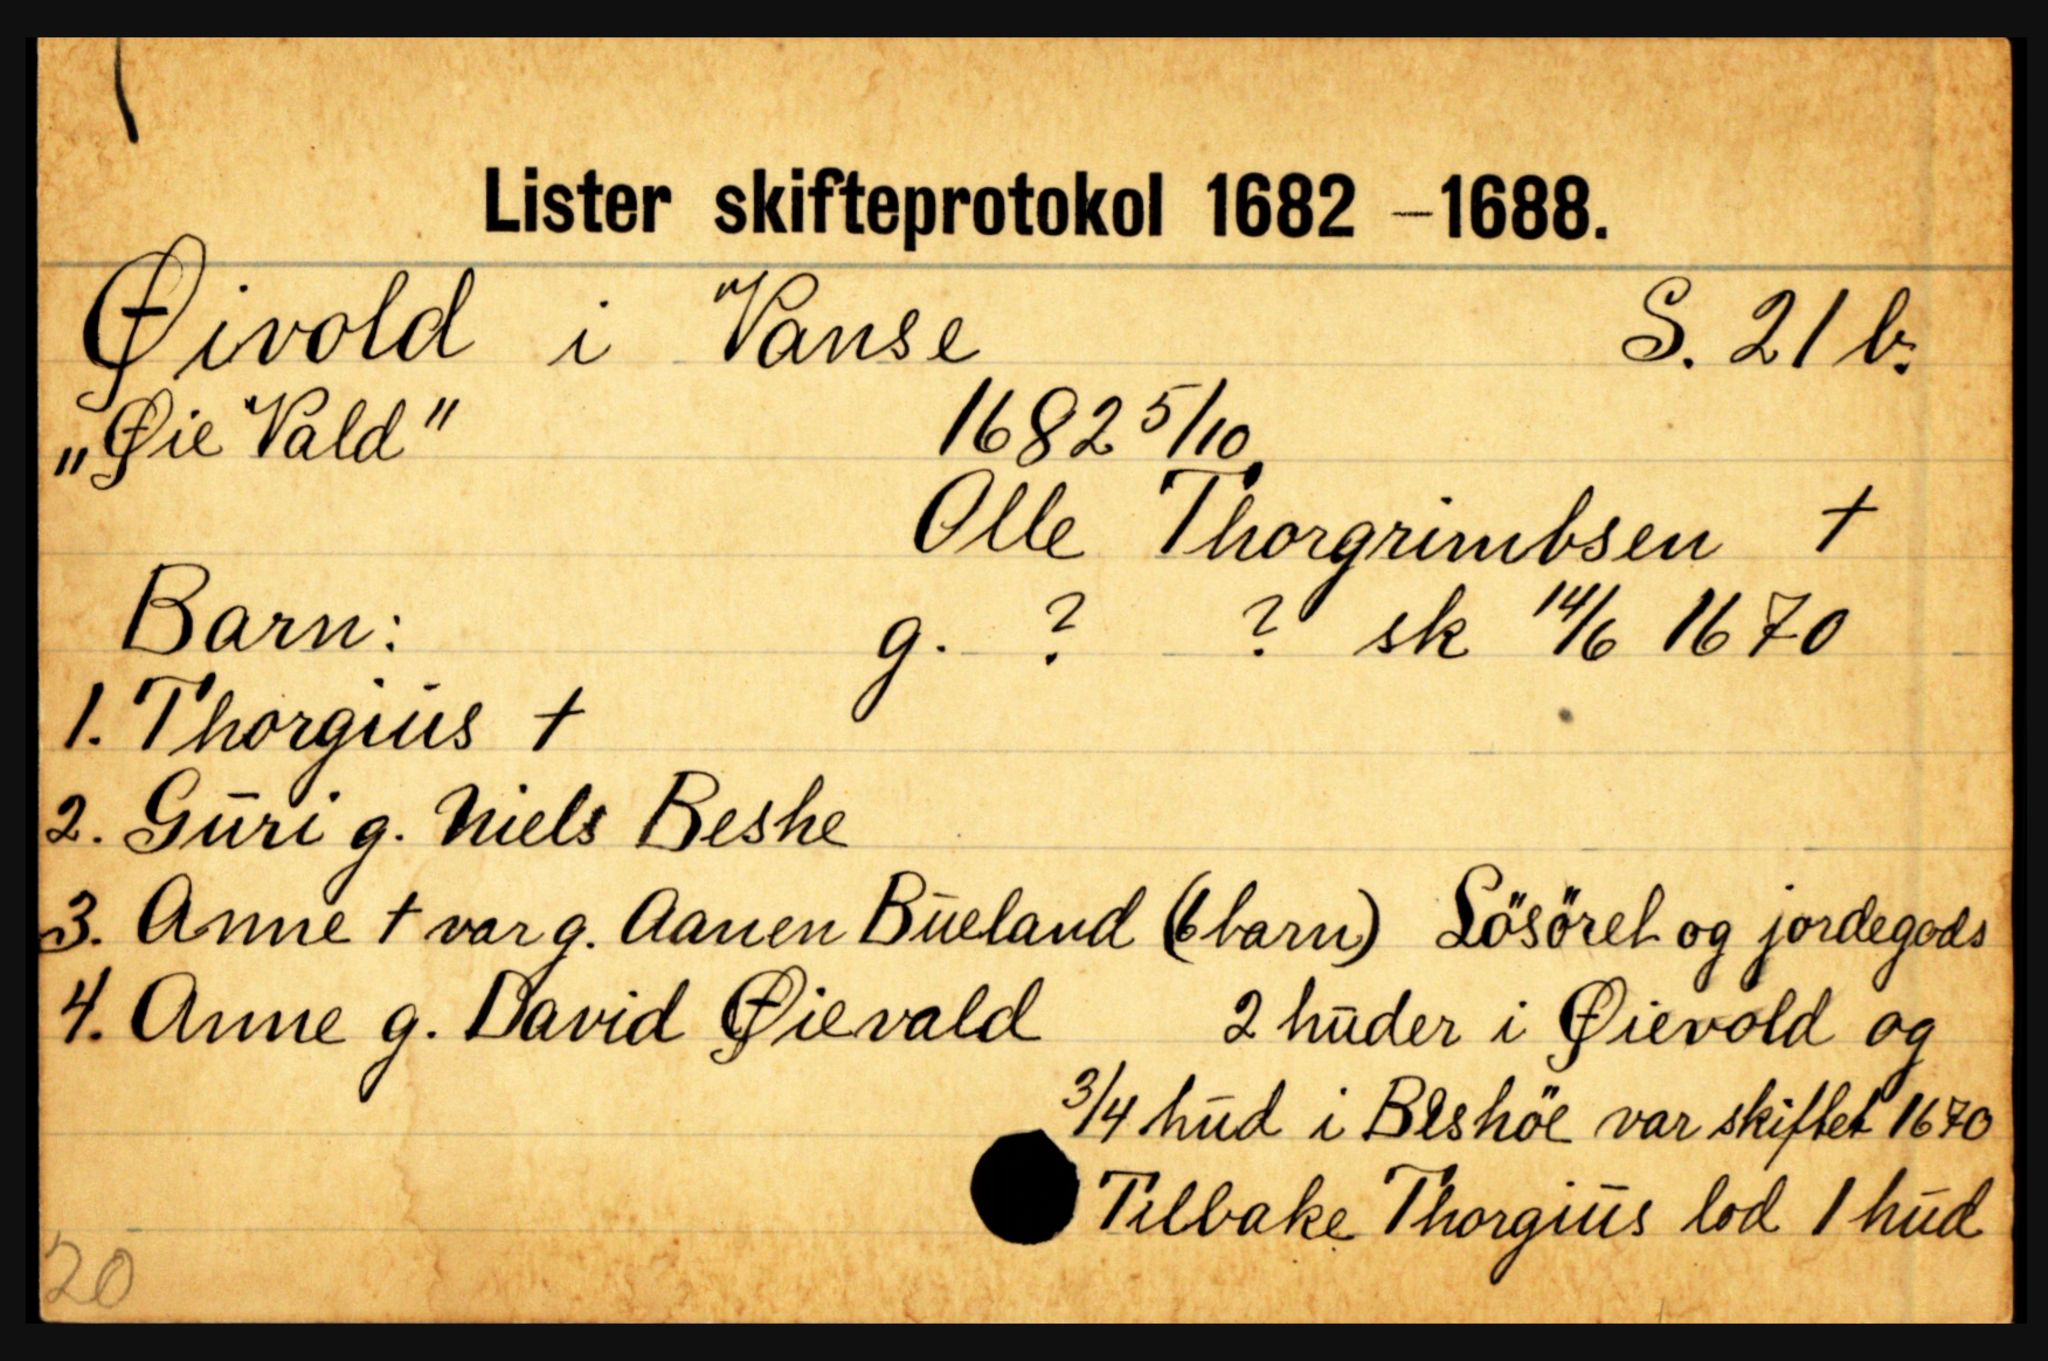 Lister skifteprotokol 1682 – 1688.
Øivold i Vanse S. 21 b.
„Øie Vald" 1682 5/10
Olle Thorgrimbsen †
Barn: g. ? ? sk 14/6 1670
1. Thorgiūs †
2. Gūri g. Niels Beshe
3. Anne † var g. Aanen Būeland (6 barn) Lösöret og jordegods
4. Anne g. David Øievald 2 hūder i Øievold og
3/4 hūd i Beshöe var skiftet 1670
Tilbake Thorgiūs lod 1 hūd
20